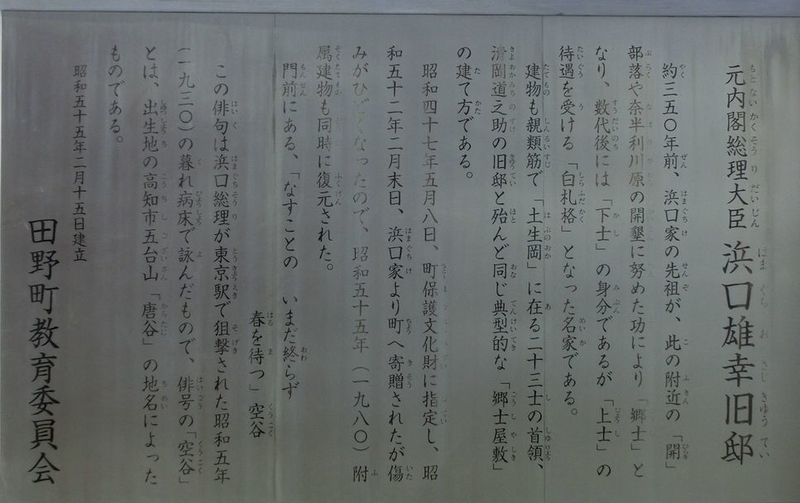 元内閣総理大臣 浜口雄幸旧邸
約三五〇年前、浜口家の先祖が、此の附近の「開」
部落や奈半利川原の開墾に努めた功により「郷士」と
なり、数代後には「下士」の身分であるが「上士」の
待遇を受ける「白札格」となった名家である。
建物も親類筋で「土生岡」に在る二十三士の首領、
清岡道之助の旧邸と殆んど同じ典型的な「郷士屋敷」
の建て方である。
昭和四十七年五月八日、町保護文化財に指定し、昭
和五十二年二月末日、浜口家より町へ寄贈されたが傷
みがひどくなったので、昭和五十五年(一九八〇)附
属建物も同時に復元された。
門前にある、「なすことの いまだ終らず
春を待つ」空谷
この俳句は浜口総理が東京駅で狙撃された昭和五年
(一九三〇)の暮れ病床で詠んだもので、俳号の「空谷」
とは、出生地の高知市五台山「唐谷」の地名によった
ものである。
昭和五十五年二月十五日建立
田野町教育委員会